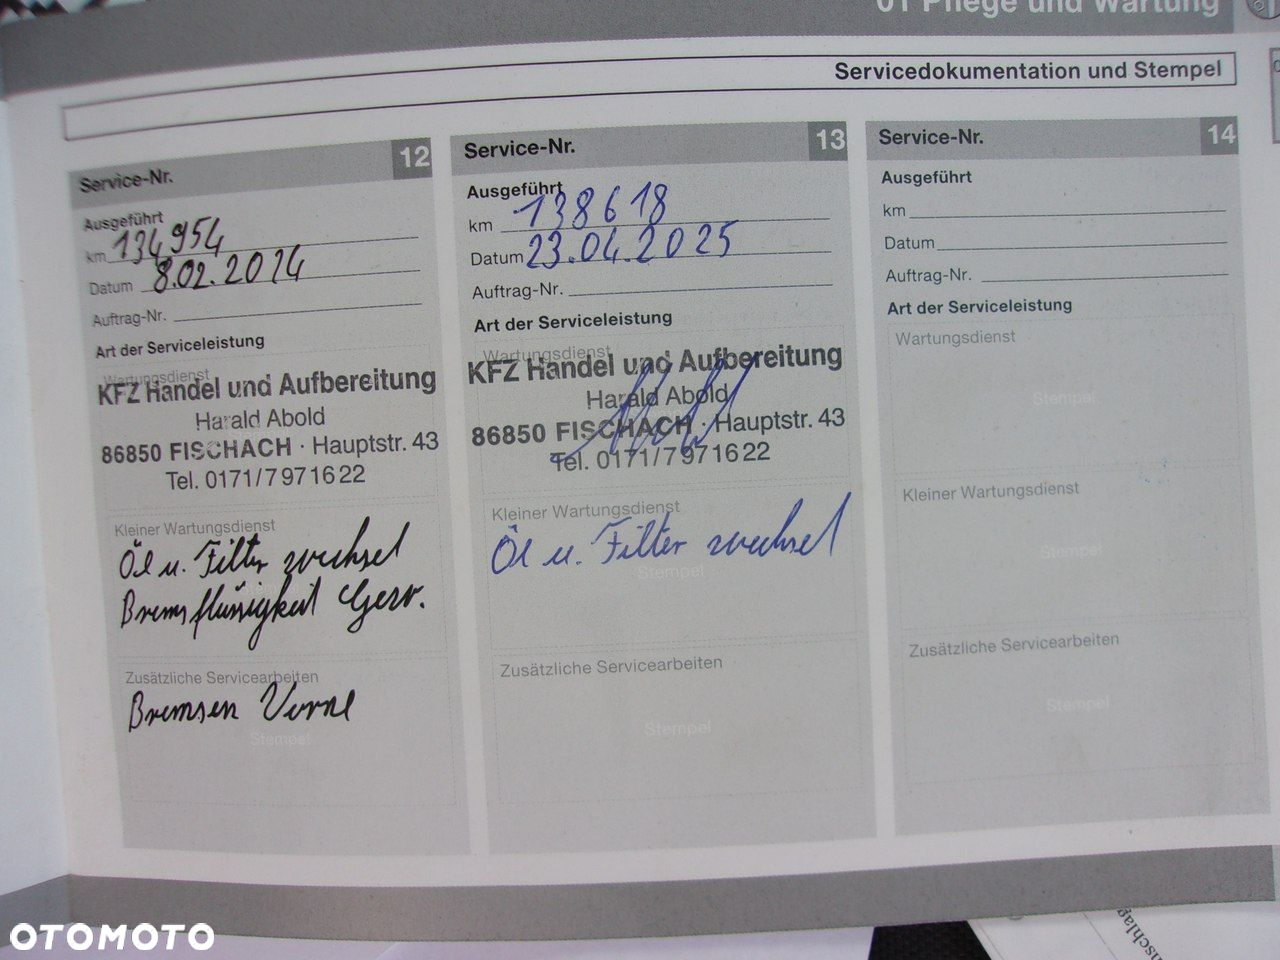 01 Pflege und Wartung
Servicedokumentation und Stempel
Service-Nr. 12
Ausgeführt
km 134954
Datum 8.02.2024
Auftrag-Nr.
Art der Serviceleistung
Wartungsdienst
KFZ Handel und Aufbereitung
Harald Abold
86850 FISCHACH · Hauptstr. 43
Tel. 0171/7971622
Kleiner Wartungsdienst
Öl u. Filter wechsel
Bremsflüssigkeit Gew.
Zusätzliche Servicearbeiten
Bremsen Vorne
Stempel
Service-Nr. 13
Ausgeführt
km 138618
Datum 23.04.2025
Auftrag-Nr.
Art der Serviceleistung
Wartungsdienst
KFZ Handel und Aufbereitung
Harald Abold
86850 FISCHACH · Hauptstr. 43
Tel. 0171/7971622
Kleiner Wartungsdienst
Öl u. Filter wechsel
Stempel
Zusätzliche Servicearbeiten
Stempel
Service-Nr. 14
Ausgeführt
km
Datum
Auftrag-Nr.
Art der Serviceleistung
Wartungsdienst
Stempel
Kleiner Wartungsdienst
Stempel
Zusätzliche Servicearbeiten
Stempel
OTOMOTO